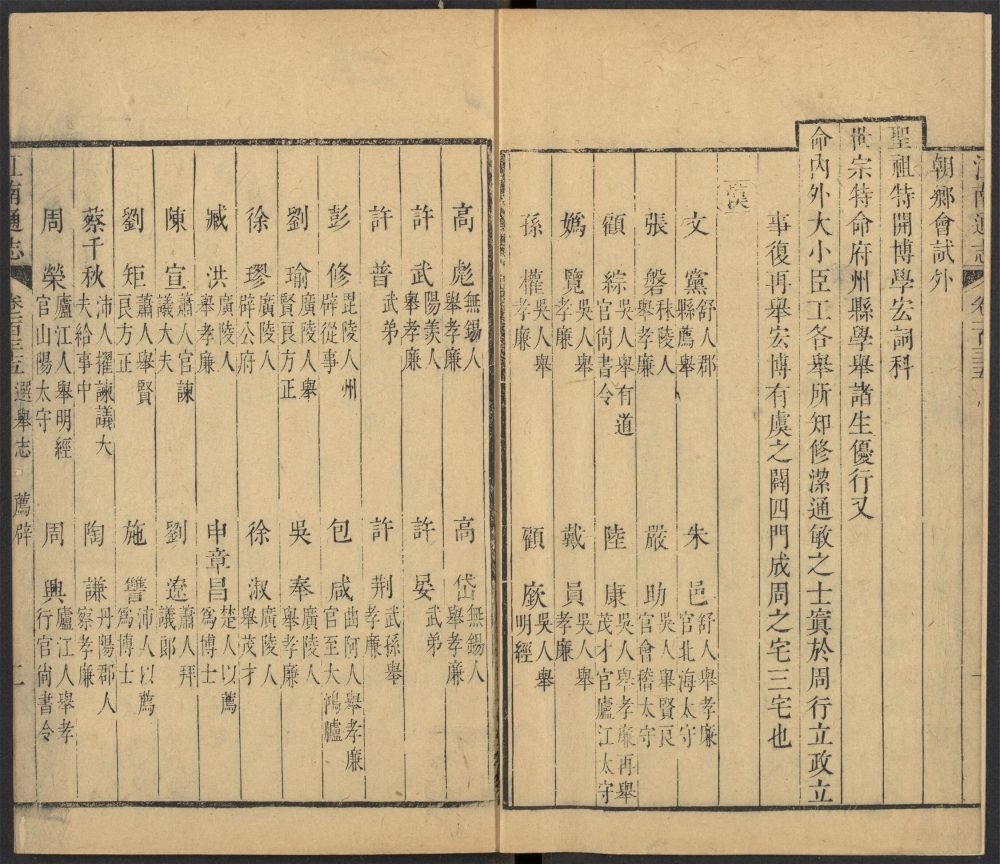 江南通志 卷一百三十五
朝鄉會試外
聖祖特開博學宏詞科
世宗特命府州縣學舉諸生優行又
命內外大小臣工各舉所知修潔通敏之士寘於周行立政立
事復再舉宏博有虞之闢四門成周之宅三宅也
漢
文黨 舒人郡縣薦舉 朱邑 舒人舉孝廉官北海太守
張磐 秣陵人舉孝廉 嚴助 吳人舉賢良官會稽太守
顧綜 吳人舉有道官尚書令 陸康 吳人舉孝廉再舉茂才官廬江太守
嬀覽 吳人舉孝廉 戴員 吳人舉孝廉
孫權 吳人舉孝廉 顧䜣 吳人舉明經
高彪 無錫人舉孝廉 高岱 無錫人舉孝廉
許武 陽羨人舉孝廉 許晏 武弟
許普 武弟 許荆 武孫舉孝廉
彭修 毘陵人州辟從事 包咸 曲阿人舉孝廉官至大鴻臚
劉瑜 廣陵人舉賢良方正 吳奉 廣陵人舉孝廉
徐璆 廣陵人辟公府 徐淑 廣陵人舉茂才
臧洪 廣陵人舉孝廉 申章昌 楚人以薦爲博士
陳宣 蕭人官諫議大夫 劉遼 蕭人拜議郎
劉矩 蕭人舉賢良方正 施讐 沛人以薦爲博士
蔡千秋 沛人擢諫議大夫給事中 陶謙 丹陽郡人察孝廉
周榮 廬江人舉明經官山陽太守 周興 廬江人舉孝行官尚書令
江南通志 卷一百三十五 選舉志 薦辟 二